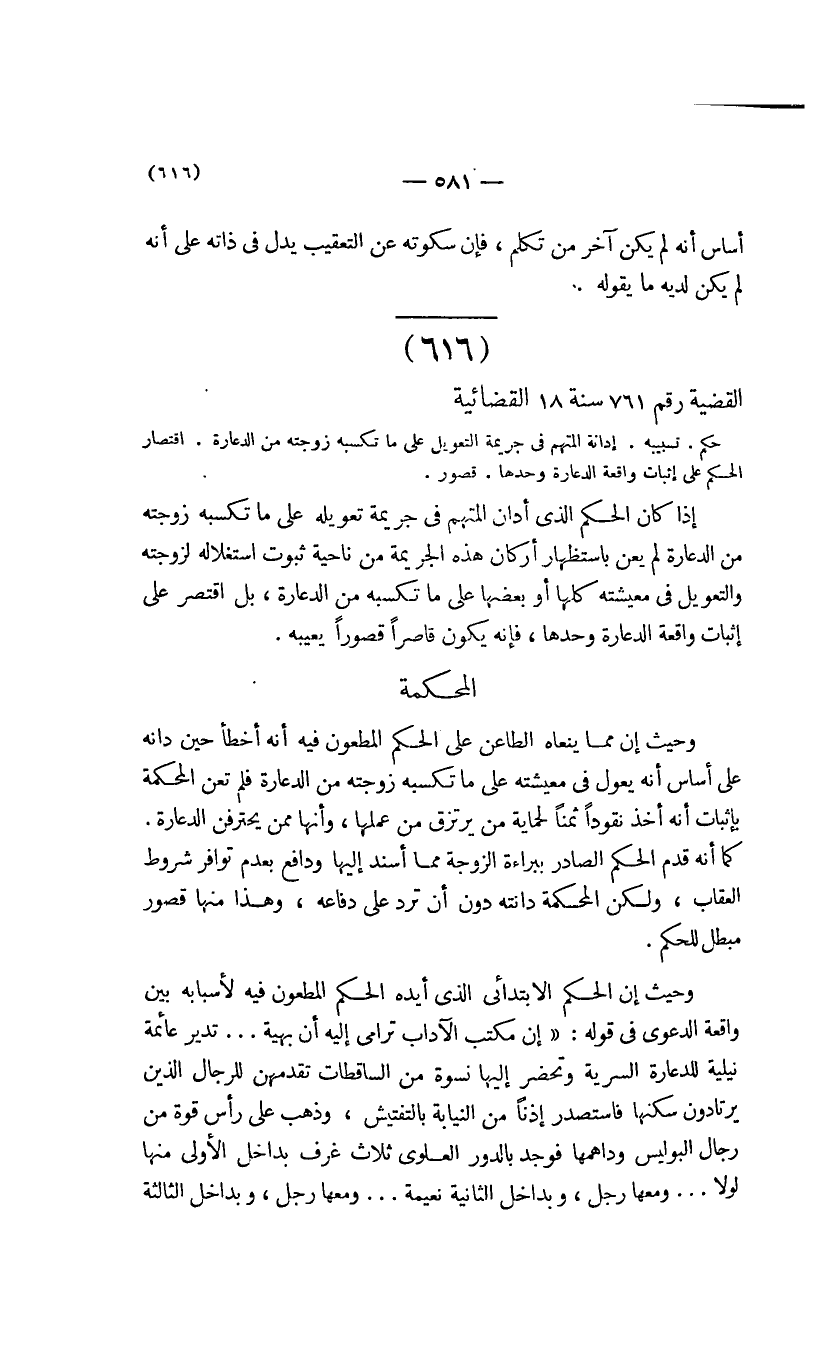 (٦١٦)
— ٥٨١ —
أساس أنه لم يكن آخر من تكلم ، فإن سكوته عن التعقيب يدل فى ذاته على أنه
لم يكن لديه ما يقوله .
(٦١٦)
القضية رقم ٧٦١ سنة ١٨ القضائية
حكم . تسبيبه . إدانة المتهم فى جريمة التعويل على ما تكسبه زوجته من الدعارة . اقتصار
الحكم على إثبات واقعة الدعارة وحدها . قصور .
إذا كان الحكم الذى أدان المتهم فى جريمة تعويله على ما تكسبه زوجته
من الدعارة لم يعن باستظهار أركان هذه الجريمة من ناحية ثبوت استغلاله لزوجته
والتعويل فى معيشته كلها أو بعضها على ما تكسبه من الدعارة ، بل اقتصر على
إثبات واقعة الدعارة وحدها ، فإنه يكون قاصراً قصوراً يعيبه .
المحكمة
وحيث إن مما ينعاه الطاعن على الحكم المطعون فيه أنه أخطأ حين دانه
على أساس أنه يعول فى معيشته على ما تكسبه زوجته من الدعارة فلم تعن المحكمة
بإثبات أنه أخذ نقوداً ثمناً لحماية من يرتزق من عملها ، وأنها ممن يحترفن الدعارة .
كما أنه قدم الحكم الصادر ببراءة الزوجة مما أسند إليها ودافع بعدم توافر شروط
العقاب ، ولكن المحكمة دانته دون أن ترد على دفاعه ، وهذا منها قصور
مبطل للحكم .
وحيث إن الحكم الابتدائى الذى أيده الحكم المطعون فيه لأسبابه بين
واقعة الدعوى فى قوله : « إن مكتب الآداب ترامى إليه أن بهية ... تدير عائمة
نيلية للدعارة السرية وتحضر إليها نسوة من الساقطات تقدمهن للرجال الذين
يرتادون سكنها فاستصدر إذناً من النيابة بالتفتيش ، وذهب على رأس قوة من
رجال البوليس وداهمها فوجد بالدور العلوى ثلاث غرف بداخل الأولى منها
لولا ... ومعها رجل ، وبداخل الثانية نعيمة ... ومعها رجل ، وبداخل الثالثة